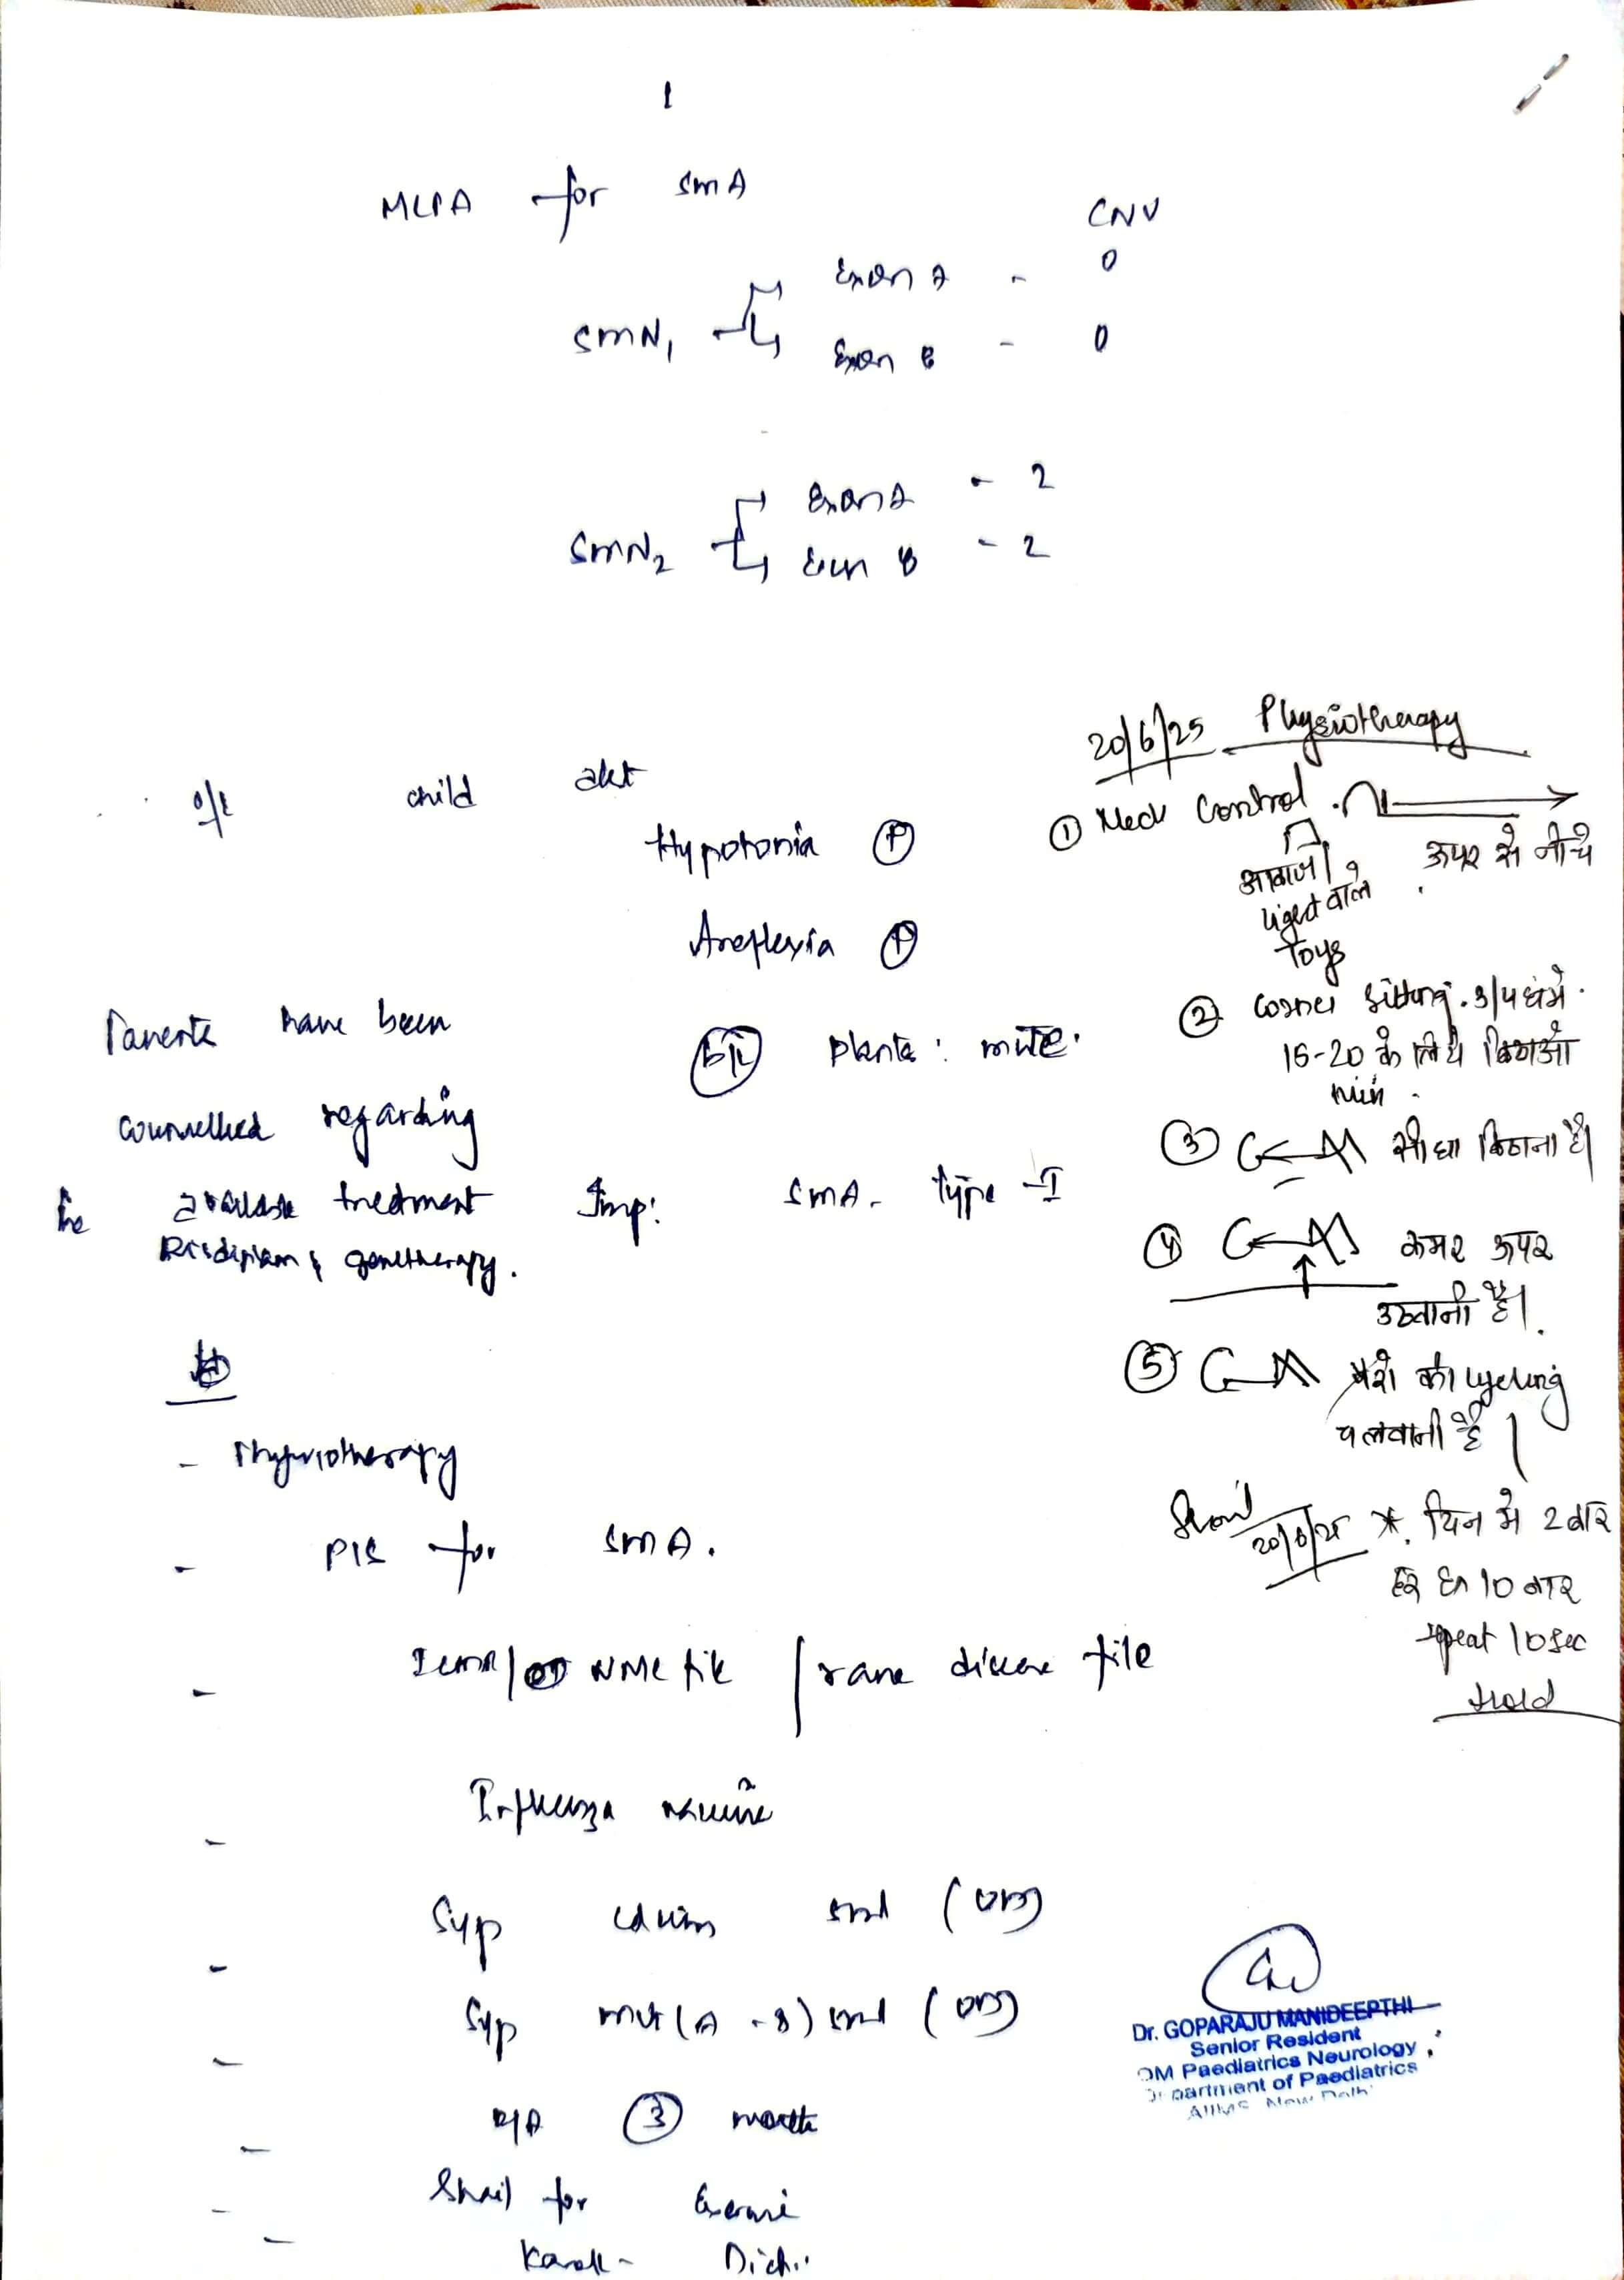 1
MLPA for SMA
CNV
SMN1 Exon 7 - 0
Exon 8 - 0
SMN2 Exon 7 - 2
Exon 8 - 2
O/E child alert
Hypotonia (P)
Areflexia (P)
B/L Planta: mute.
Parents have been
counselled regarding
the available treatment
Risdiplam & genetherapy.
Imp: SMA - type -I
- Physiotherapy
- PIS for SMA.
- NMC file / rare disease file
- Influenza vaccine
- Syp 5ml (OD)
- Syp 5ml (OD)
- R/A (3) month
- Shail for
20/6/25 Physiotherapy
① Neck Control
आवाज / light वाले
toys
ऊपर से नीचे
② Corner sitting. 3/4 घंटे
15-20 के लिये बिठाओ
min
③ सीधा बिठाना है।
④ कमर ऊपर
उठवानी है।
⑤ पैरो की cycling
चलवानी है।
20/6/25
* दिन मे 2 बार
हर 10 बार
repeat 10 sec
Hold
Dr. GOPARAJU MANIDEEPTHI
Senior Resident
DM Paediatrics Neurology
Department of Paediatrics
AIIMS, New Delhi